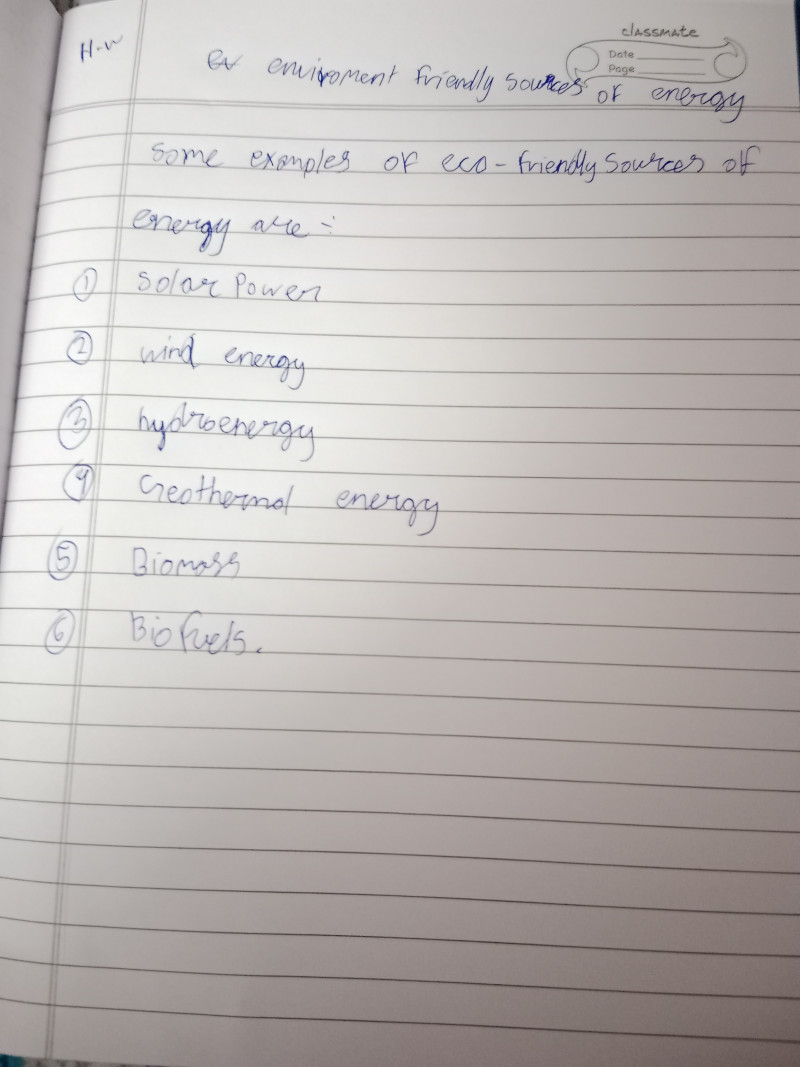 H.W
classmate
Date
Page
Ev enviroment friendly sources of energy
Some examples of eco-friendly sources of
energy are :-
① Solar Power
② wind energy
③ hydroenergy
④ Geothermal energy
⑤ Biomass
⑥ Biofuels.